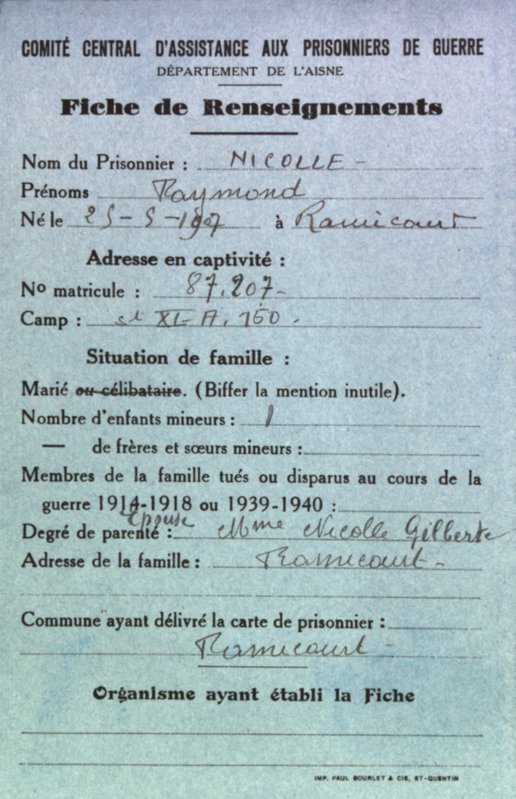 COMITÉ CENTRAL D'ASSISTANCE AUX PRISONNIERS DE GUERRE
DÉPARTEMENT DE L'AISNE
Fiche de Renseignements
Nom du Prisonnier : NICOLLE -
Prénoms Raymond
Né le à Ramicourt
Adresse en captivité :
No matricule : 87.207-
Camp : st XI A. 150.
Situation de famille :
Marié ou célibataire. (Biffer la mention inutile).
Nombre d'enfants mineurs : 1
— de frères et sœurs mineurs :
Membres de la famille tués ou disparus au cours de la
guerre 1914-1918 ou 1939-1940 :
Epouse
Degré de parenté : Mme Nicolle Gilberte
Adresse de la famille : Ramicourt -
Commune ayant délivré la carte de prisonnier :
Ramicourt -
Organisme ayant établi la Fiche
IMP. PAUL BOURLET & CIE, ST-QUENTIN